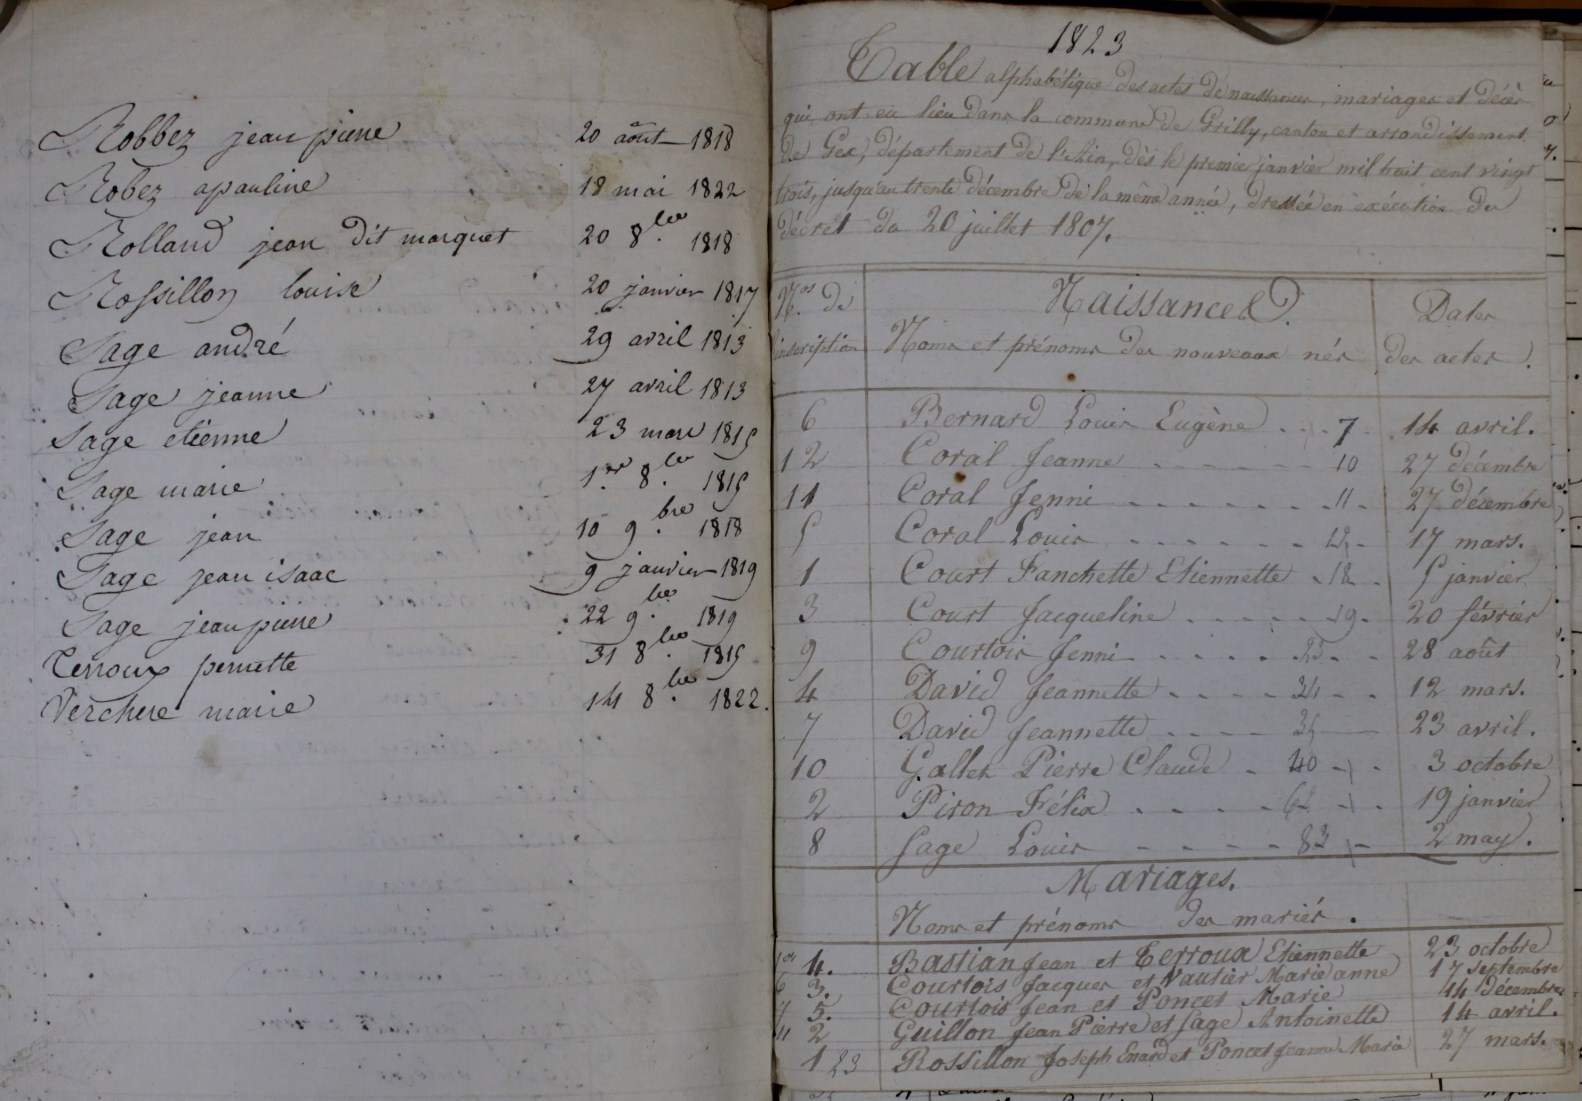 Robbez jean pierre 20 août 1818
Robez apauline 18 mai 1822
Rolland jean dit marquet 20 8.bre 1818
Rossillon louise 20 janvier 1817
Sage andré 29 avril 1813
Sage jeanne 27 avril 1813
Sage etiènne 23 mars 1815
Sage marie 1.er 8.bre 1815
Sage jean 10 9.bre 1818
Sage jean isaac 9 janvier 1819
Sage jean pierre 22 9.bre 1819
Terroux pernette 31 8.bre 1815
Verchere marie 14 8.bre 1822.
1823
Table alphabétique des actes de naissances, mariages et décès
qui ont eu lieu dans la commune de Grilly, canton et arrondissement
de Gex, département de l'Ain, dès le premier janvier mil huit cent vingt
trois, jusqu'au trente décembre de la même année, dressée en exécution du
décret du 20 juillet 1807.
N.os de Naissances. Dates
inscription Noms et prénoms des nouveaux nés des actes.
6 Bernard Louis Eugène 7 14 avril.
12 Coral Jeanne 10 27 décembre
11 Coral Jenni 11 27 décembre
5 Coral Louis 17 mars.
1 Court Fanchette Etiennette 18 5 janvier
3 Court Jacqueline 19 20 février
9 Courtois Jenni 25 28 août
4 David Jeannette 34 12 mars.
7 David Jeannette 35 23 avril.
10 Gallet Pierre Claude 40 3 octobre
2 Piron Félix 19 janvier
8 Sage Louis 83 2 may.
Mariages.
Noms et prénoms des mariés.
4. Bastian Jean et Terroux Etiennette 23 octobre
3. Courtois Jacques et Vautier Marie anne 17 septembre
5. Courtois Jean et Poncet Marie 14 décembre
2 Guillon Jean Pierre et Sage Antoinette 14 avril.
1 23 Rossillon Joseph et Poncet Jeanne Marie 27 mars.